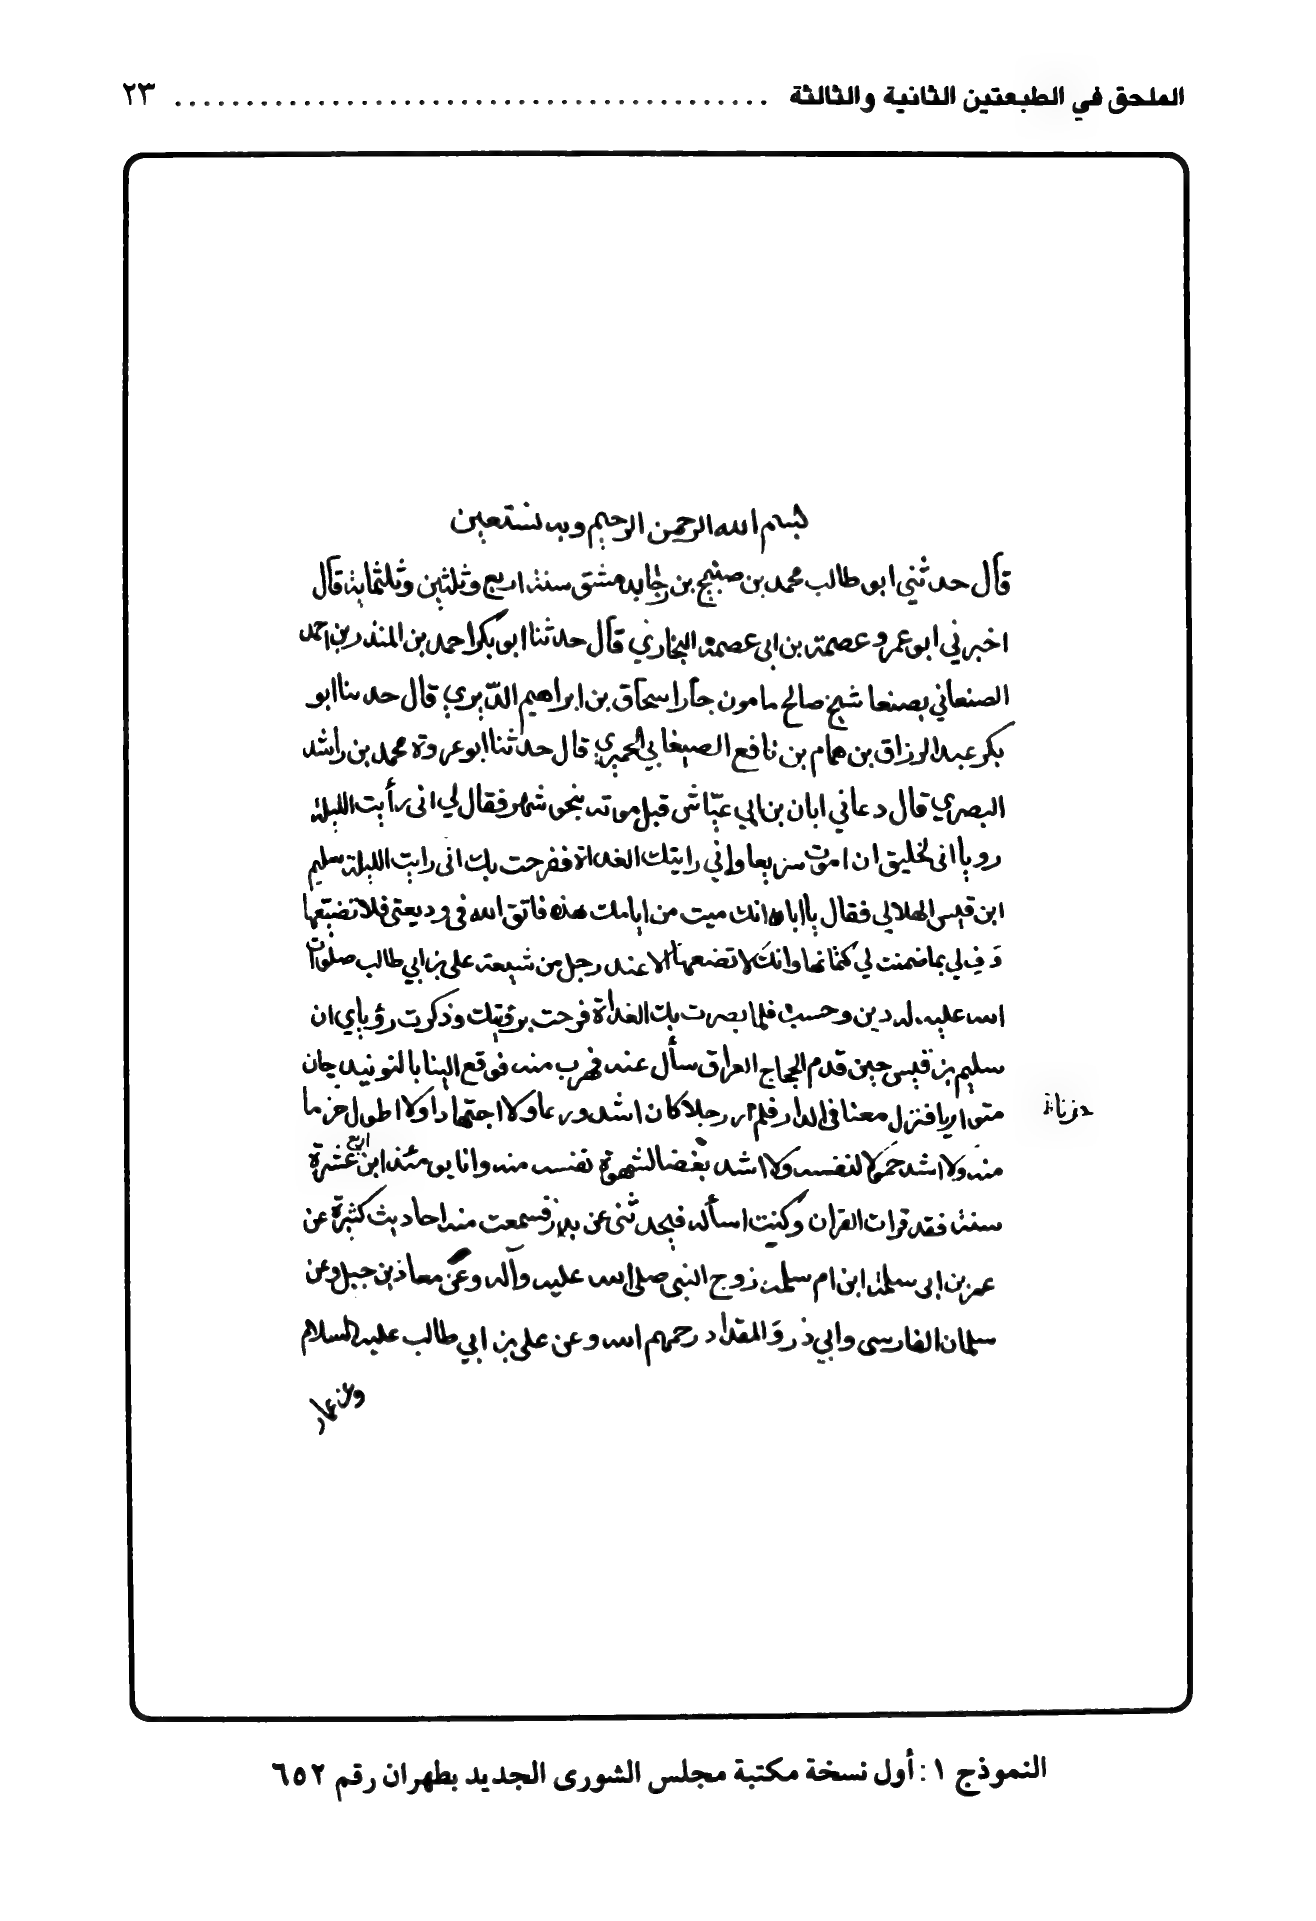 الملحق في الطبعتين الثانية والثالثة ........................................ ٢٣
بسم الله الرحمن الرحيم وبه نستعين
قال حدثني ابو طالب محمد بن صبيح بن رجا بدمشق سنة اربع وثلثين وثلثماية قال
اخبرني ابو عمرو عصمة بن ابى عصمة البخاري قال حدثنا ابو بكر احمد بن المنذر بن احمد
الصنعاني بصنعا شيخ صالح مامون جار اسحاق بن ابراهيم الدبري قال حدثنا ابو
بكر عبد الرزاق بن همام بن نافع الصنعاني الحميري قال حدثنا ابو عروة محمد بن راشد
البصري قال دعاني ابان بن ابي عياش قبل موته بنحو شهر فقال لي انى رأيت الليلة
رويا انى لخليق ان اموت سريعا واني رايتك الغداة ففرحت بك انى رايت الليلة سليم
ابن قيس الهلالي فقال يا ابان انك ميت من ايامك هذه فاتق الله في وديعتى فلا تضيعها
وَفِ لي بما ضمنت لي كتمانها وانك لا تضعها الا عند رجل من شيعة على بن ابي طالب صلوات
الله عليه له دين وحسب فلما بصرت بك الغداة فرحت برؤيتك وذكرت رؤياي ان
سليم بن قيس حين قدم الحجاج العراق سأل عنه فهرب منه فوقع الينا بالنوبندجان
متواريا فنزل معنا في الدار فلم ار رجلا كان اشد ورعا ولا اجتهادا ولا اطول حزنا
منه ولا اشد خمولا لنفسه ولا اشد بغضا لشهوة نفسه منه وانا يومئذ ابن اربع عشرة
سنة فقد قرات القران وكنت اسأله فيحدثنى عن بدر فسمعت منه احاديث كثيرة عن
عمر بن ابى سلمة ابن ام سلمة زوج النبى صلى الله عليه وآله وعن معاذ بن جبل وعن
سلمان الفارسى وابي ذر والمقداد رحمهم الله وعن على بن ابي طالب عليه السلام
وعن عمار
النموذج ١ : أول نسخة مكتبة مجلس الشورى الجديد بطهران رقم ٦٥٢